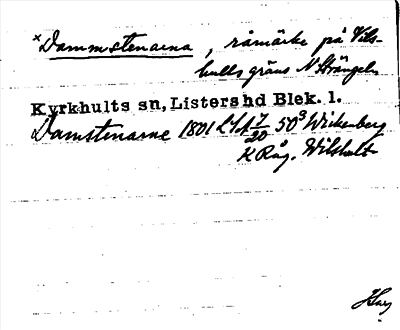 ×Dammstenarna, råmärke på Vils-
hults gräns N Strängeln
Kyrkhults sn, Listers hd Blek. l.
Damstenarne 1801 LSA 7/20 50³ Wickenberg
K Råg. Wilshult